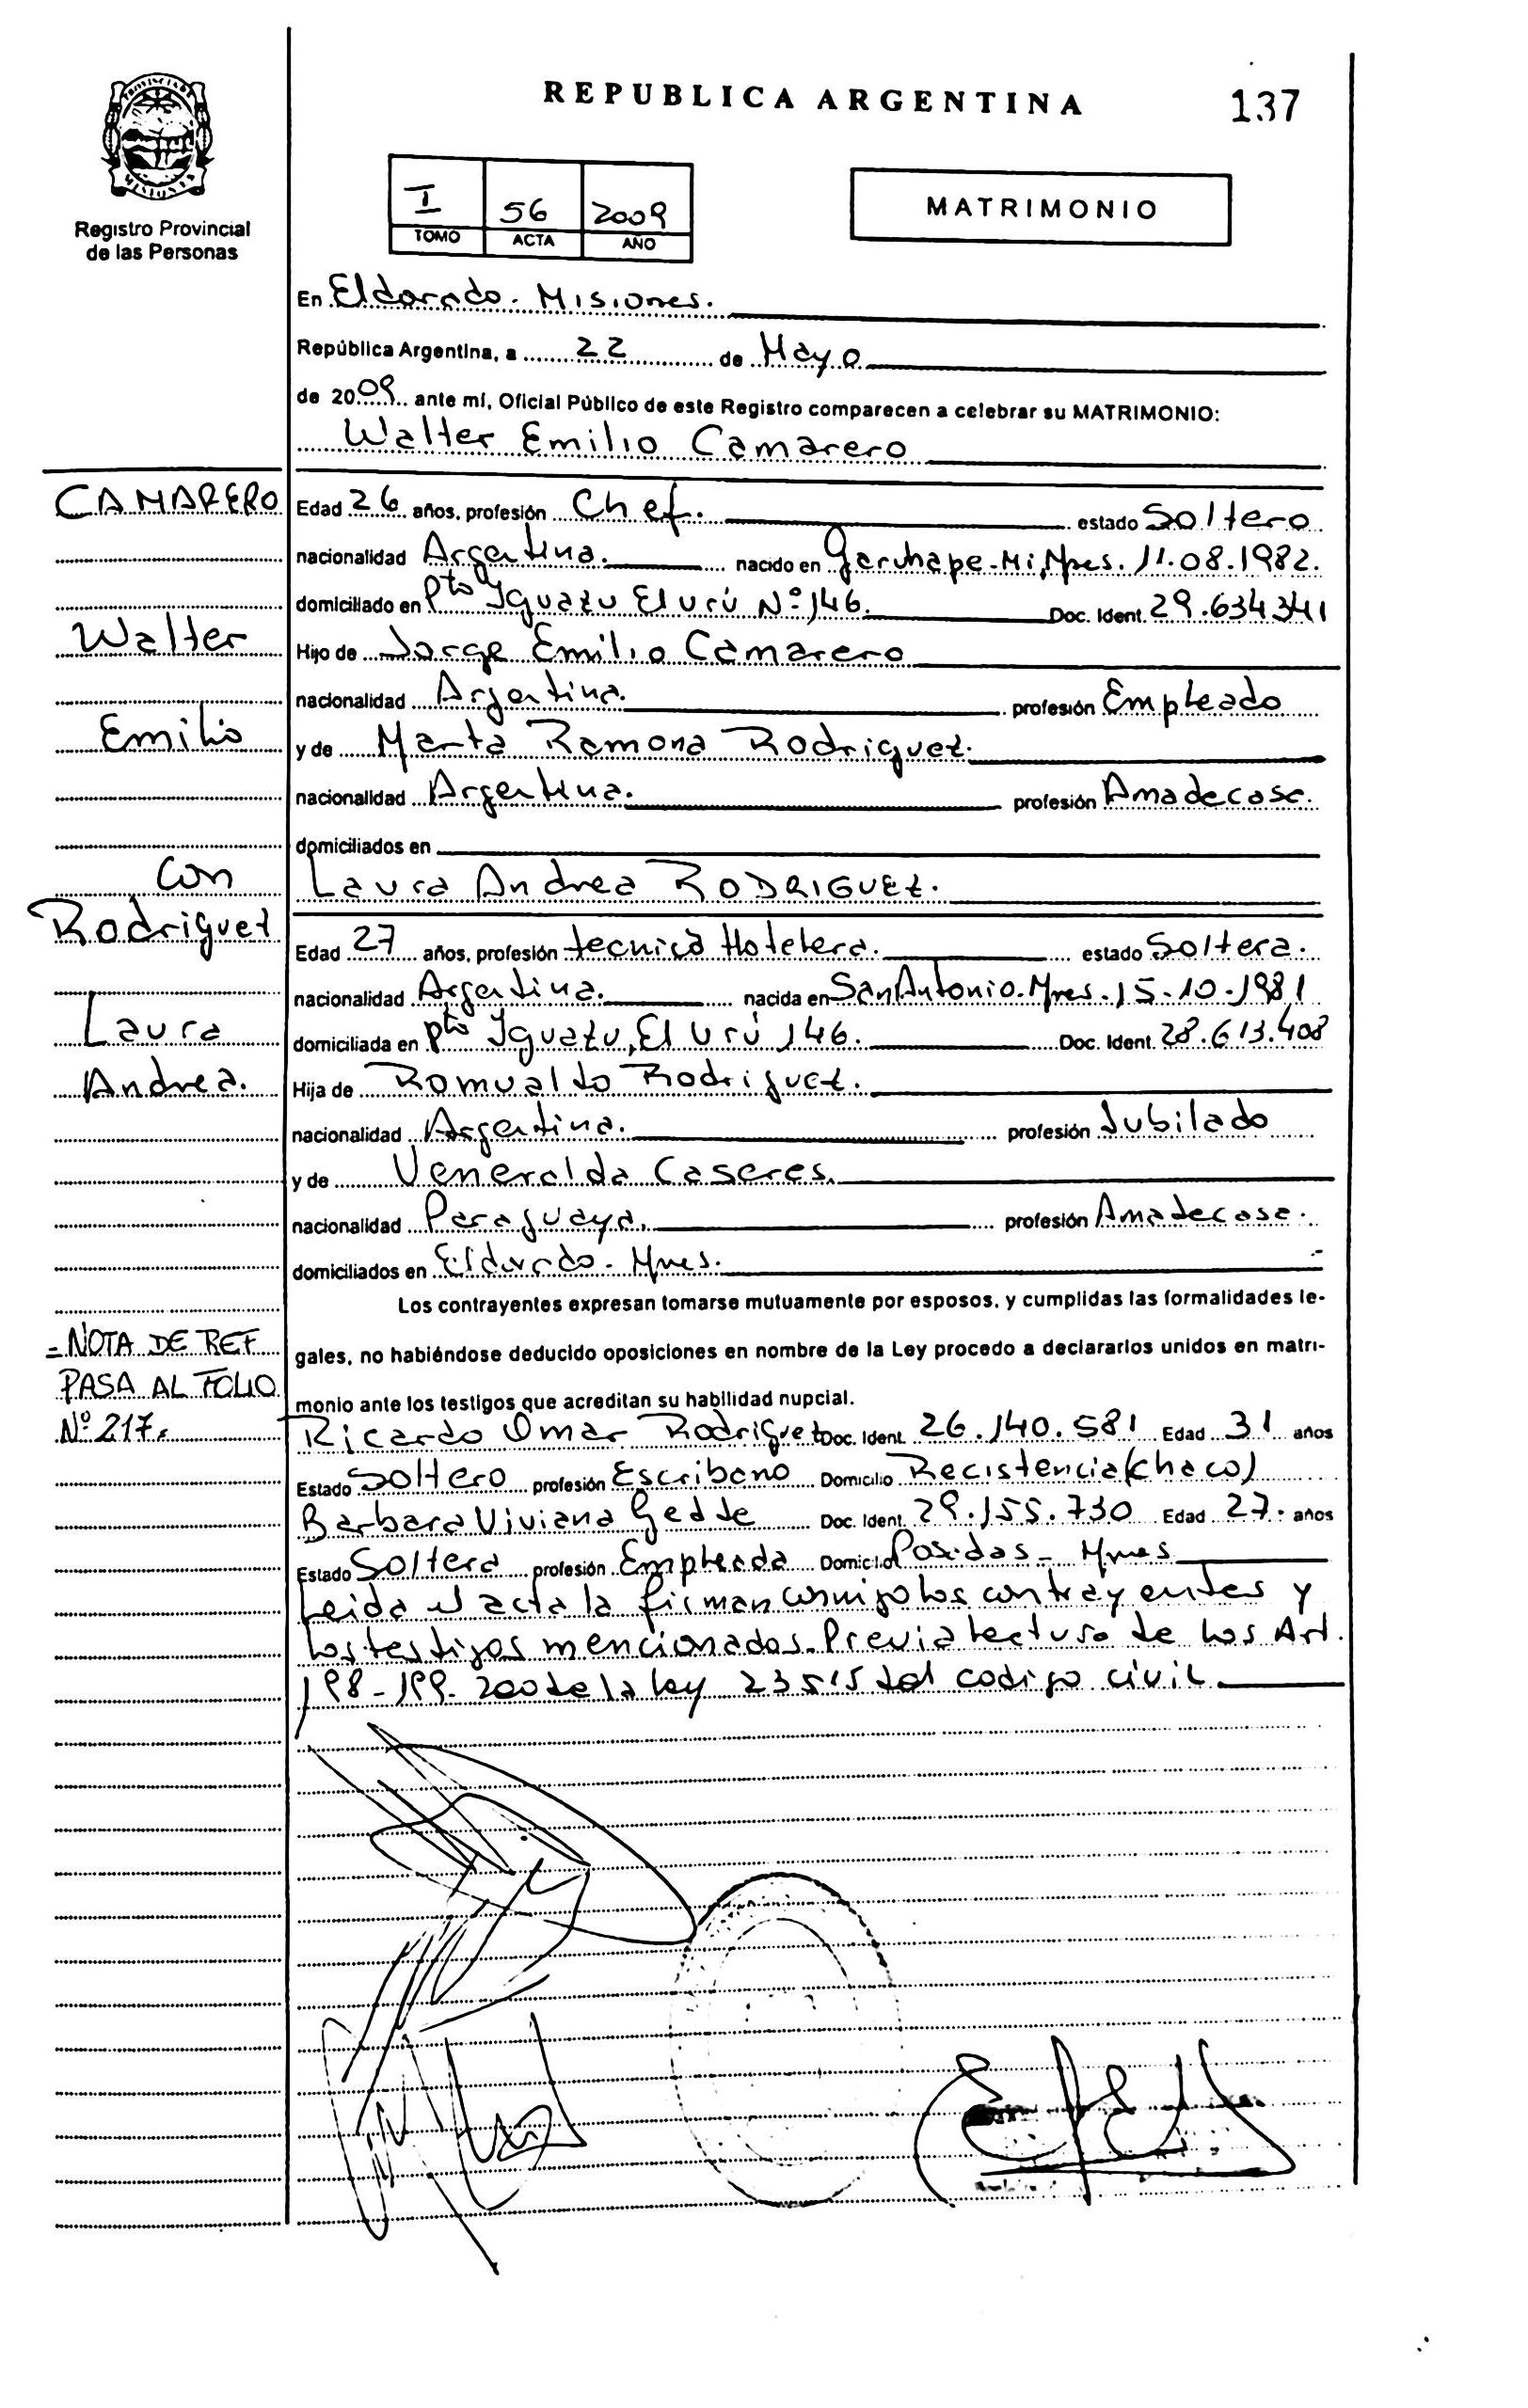 REPUBLICA ARGENTINA
137
PROVINCIA DE
MISIONES
Registro Provincial
de las Personas
I 56 2009
TOMO ACTA AÑO
MATRIMONIO
En Eldorado. Misiones.
República Argentina, a 22 de Mayo
de 2009 ante mí, Oficial Público de este Registro comparecen a celebrar su MATRIMONIO:
Walter Emilio Camarero
CAMARERO
Walter
Emilio
con
Rodriguez
Laura
Andrea.
Edad 26 años, profesión Chef. estado Soltero
nacionalidad Argentina. nacido en Garuhape-Mi, Mnes. 11.08.1982.
domiciliado en Pto Iguazu El Urú Nº 146. Doc. Ident. 29.634.341
Hijo de Jorge Emilio Camarero
nacionalidad Argentina. profesión Empleado
y de Marta Ramona Rodriguez.
nacionalidad Argentina. profesión Amadecasa.
domiciliados en
Laura Andrea RODRIGUEZ.
Edad 27 años, profesión tecnica Hotelera. estado Soltera.
nacionalidad Argentina. nacida en San Antonio. Mnes. 15-10-1981
domiciliada en Pto Iguazu, El Urú 146. Doc. Ident. 28.613.408
Hija de Romualdo Rodriguez.
nacionalidad Argentina. profesión Jubilado
y de Veneralda Caseres.
nacionalidad Paraguaya. profesión Amadecasa.
domiciliados en Eldorado. Mnes.
Los contrayentes expresan tomarse mutuamente por esposos, y cumplidas las formalidades le-
gales, no habiéndose deducido oposiciones en nombre de la Ley procedo a declararlos unidos en matri-
monio ante los testigos que acreditan su habilidad nupcial.
= NOTA DE REF
PASA AL FOLIO
Nº 217.
Ricardo Omar Rodriguez Doc. Ident. 26.140.581 Edad 31 años
Estado Soltero profesión Escribano Domicilio Recistencia (Chaco)
Barbara Viviana Gedde Doc. Ident. 29.155.730 Edad 27. años
Estado Soltera profesión Empleada Domicilio Posadas - Mnes
Leida el acta la firman conmigo los contrayentes y
los testigos mencionados. Previa lectura de los Art.
198-199-200 de la ley 23515 del codigo civil.